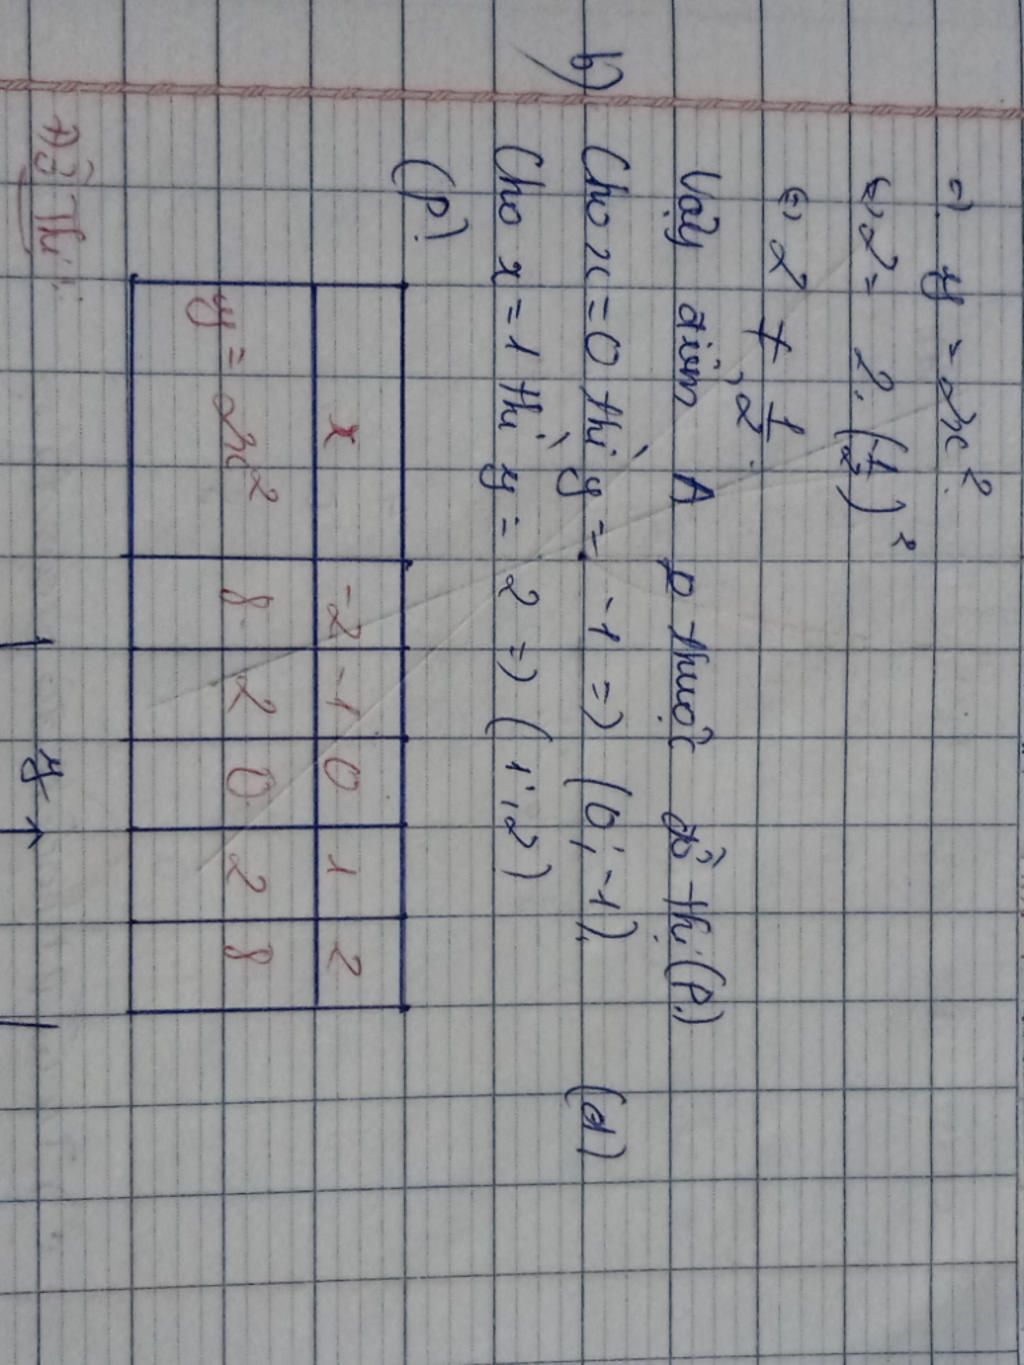 =) y = 2x².
(=) 2 = 2.(1/2)²
(=) 2 ≠ 1/2.
Vậy điểm A o thuộc đồ thị (P.)
b) Cho x=0 thì y = -1 => (0; -1). (d)
Cho x = 1 thì y = 2 => (1; 2)
(P)
x -2 -1 0 1 2
y = 2x² 8 2 0 2 8
Đồ Thị:
y